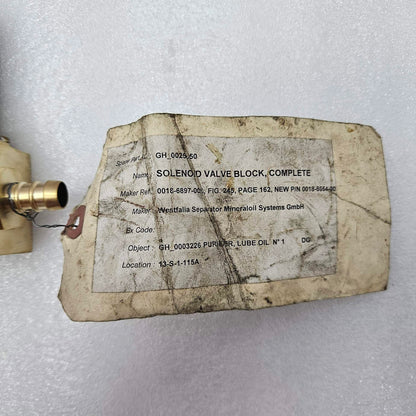 Spare Part nr: GH_0025.50
Name: SOLENOID VALVE BLOCK, COMPLETE
Maker Ref: 0018-6897-00 FIG. 245, PAGE 162, NEW P/N
Maker: Westfalia Separator Mineraloil Systems GmbH
Bx Code:
Object: GH_0003226 PURIFIER, LUBE OIL N° 1 DG
Location: 13-S-1-115A